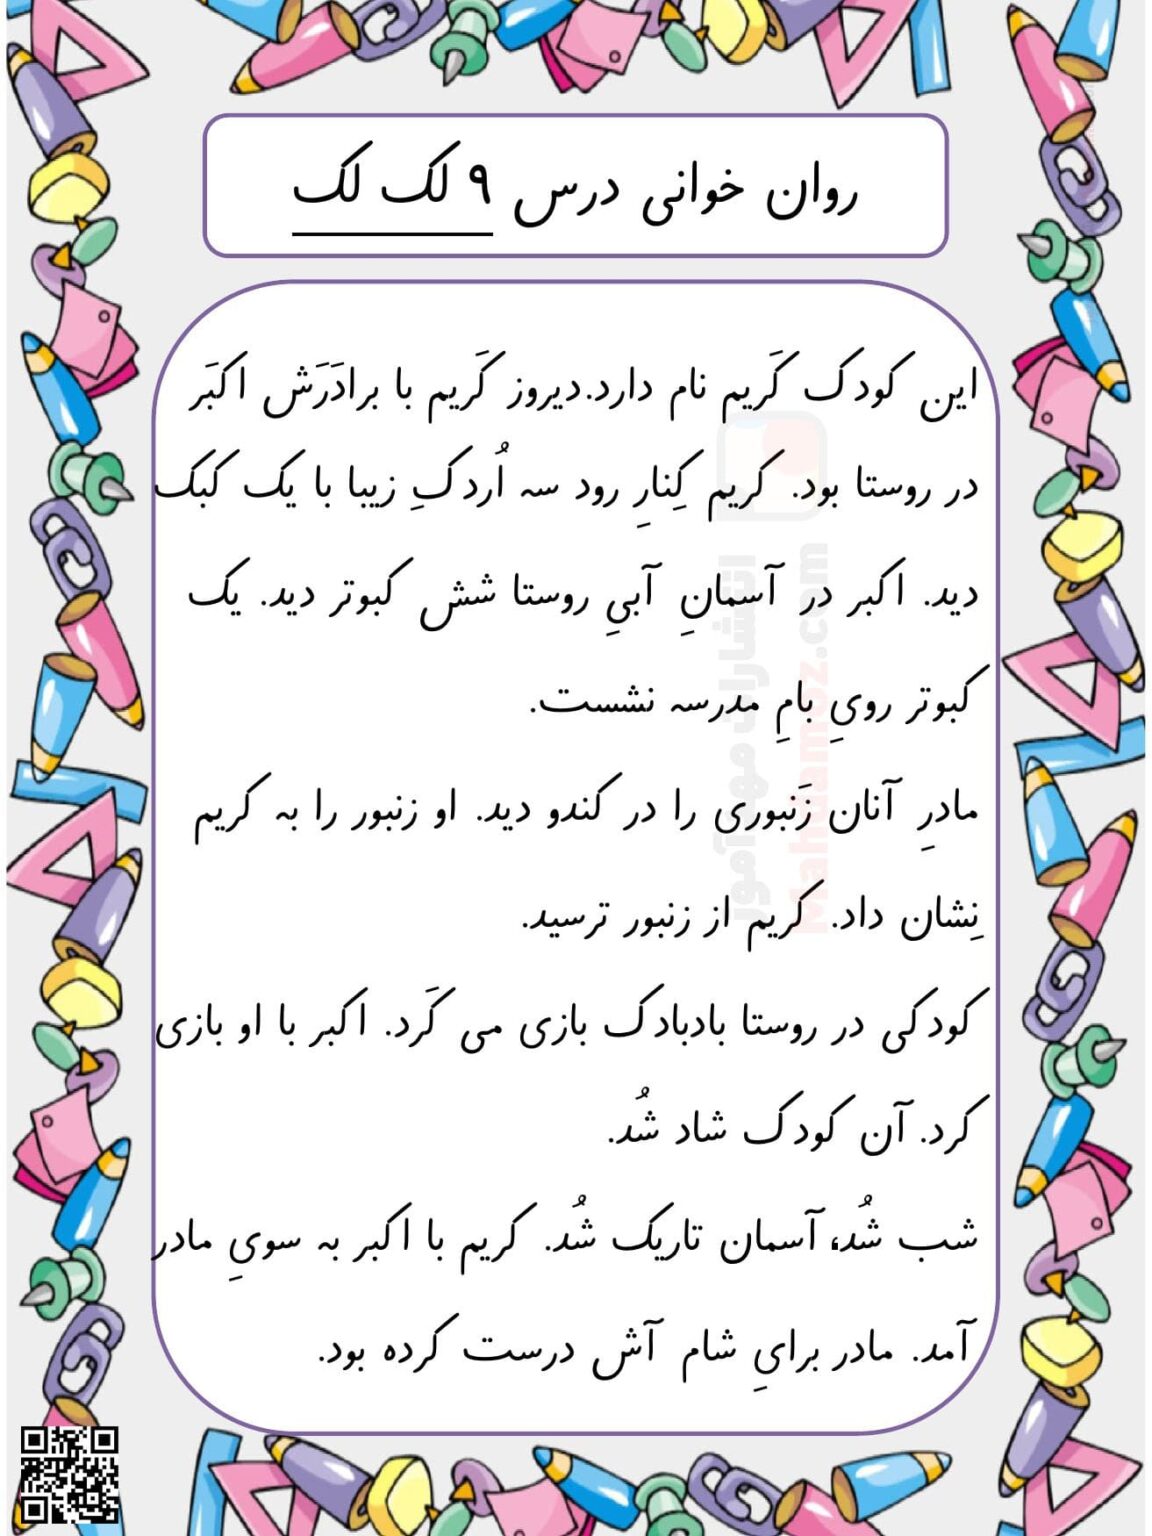 روان خوانی درس ۹ لک لک
این کودک کَریم نام دارد.دیروز کَریم با برادَرَش اکبَر
در روستا بود. کریم کِنارِ رود سه اُردکِ زیبا با یک کبک
دید. اکبر در آسمانِ آبیِ روستا شش کبوتر دید. یک
کبوتر رویِ بامِ مدرسه نشست.
مادرِ آنان زَنبوری را در کندو دید. او زنبور را به کریم
نِشان داد. کریم از زنبور ترسید.
کودکی در روستا بادبادک بازی می کَرد. اکبر با او بازی
کرد. آن کودک شاد شُد.
شب شُد، آسمان تاریک شُد. کریم با اکبر به سویِ مادر
آمد. مادر برایِ شام آش درست کرده بود.
انتشارات مهد آموز
Mahdamoz.com